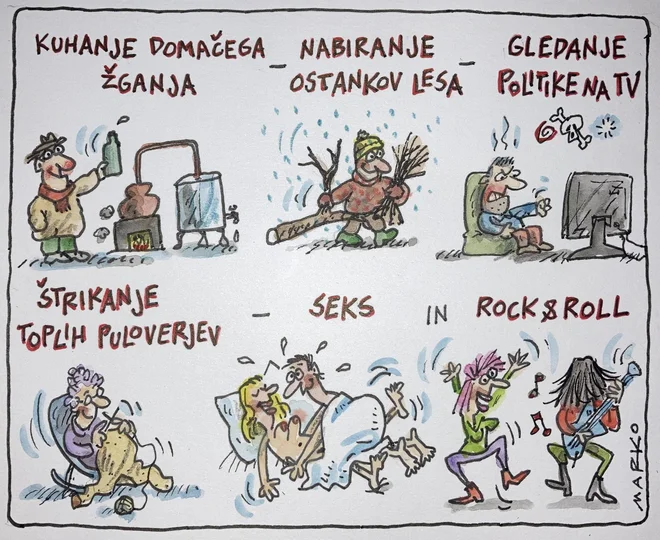 KUHANJE DOMAČEGA
ŽGANJA
-
NABIRANJE
OSTANKOV LESA
-
GLEDANJE
POLITIKE NA TV
ŠTRIKANJE
TOPLIH PULOVERJEV
-
SEKS
IN
ROCK & ROLL
MARKO